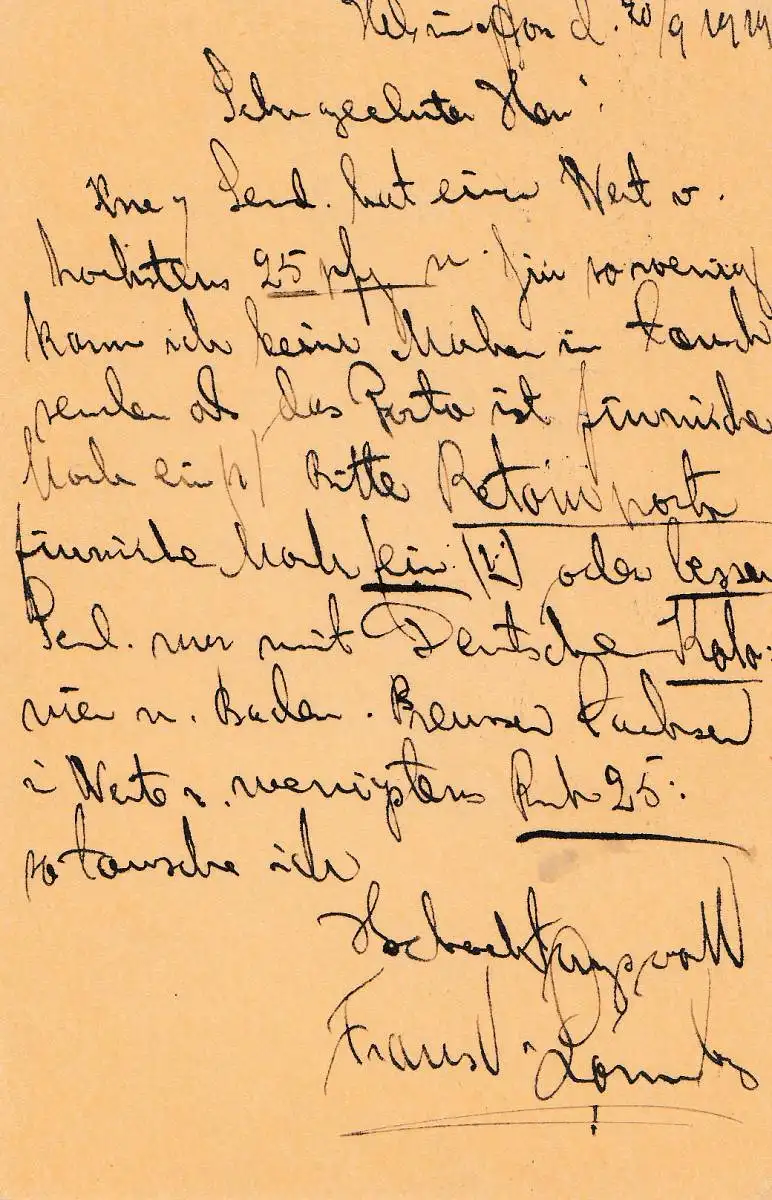 Helsingfors d. 20/9 1919
Sehr geehrter Herr!
Ihre Send. hat einen Wert v.
höchstens 25 pfg u. für so wenig
kann ich keine Marken in Tausch
senden als das Porto ist finnische
Mark ein Bitte Retourporto
finnische Mark ein (1) oder besser
Send. nur mit Deutsche Kolo-
nien u. Baden. Preussen Sachsen
i Werte v. wenigstens 25.
so tausche ich
Hochachtungsvoll
Frans